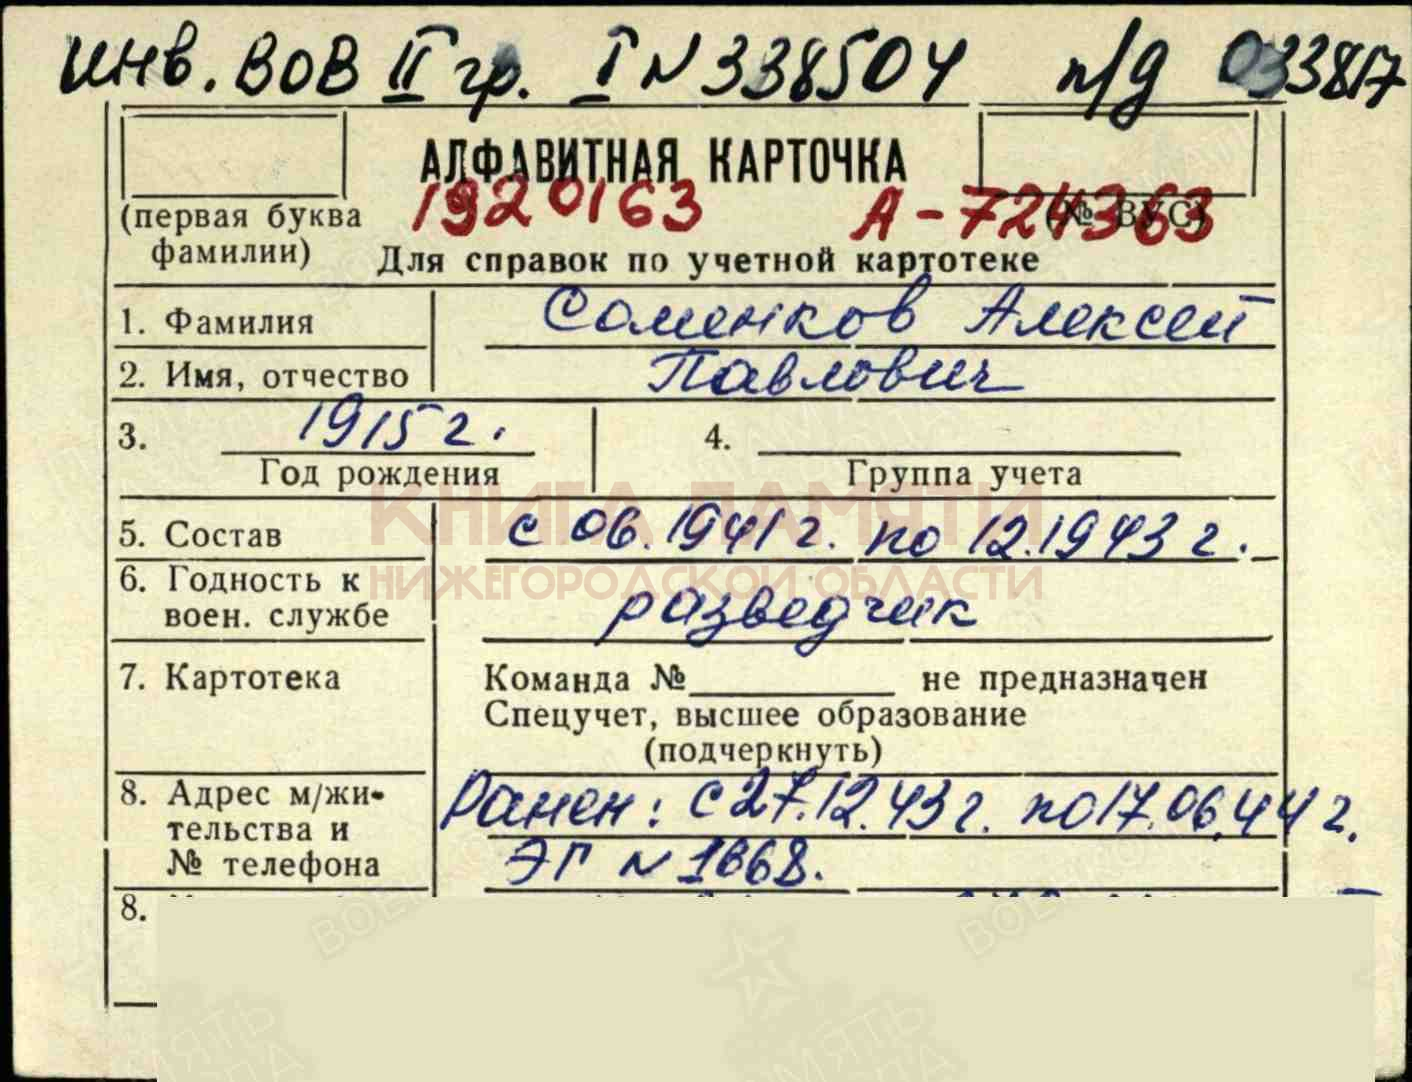 инв. ВОВ II гр. I N 338504 п/д 033817
АЛФАВИТНАЯ КАРТОЧКА
(первая буква фамилии)
1920163 А-724363
(№ ВУС)
Для справок по учетной картотеке
1. Фамилия Соменков Алексей
2. Имя, отчество Павлович
3. 1915 г. 4.
Год рождения Группа учета
КНИГА ПАМЯТИ
5. Состав с 06.1941 г. по 12.1943 г.
НИЖЕГОРОДСКОЙ ОБЛАСТИ
6. Годность к
воен. службе разведчик
7. Картотека Команда № не предназначен
Спецучет, высшее образование
(подчеркнуть)
8. Адрес м/жи-
тельства и
№ телефона
Ранен: с 27.12.43 г. по 17.06.44 г.
ЭГ N 1668.
8.